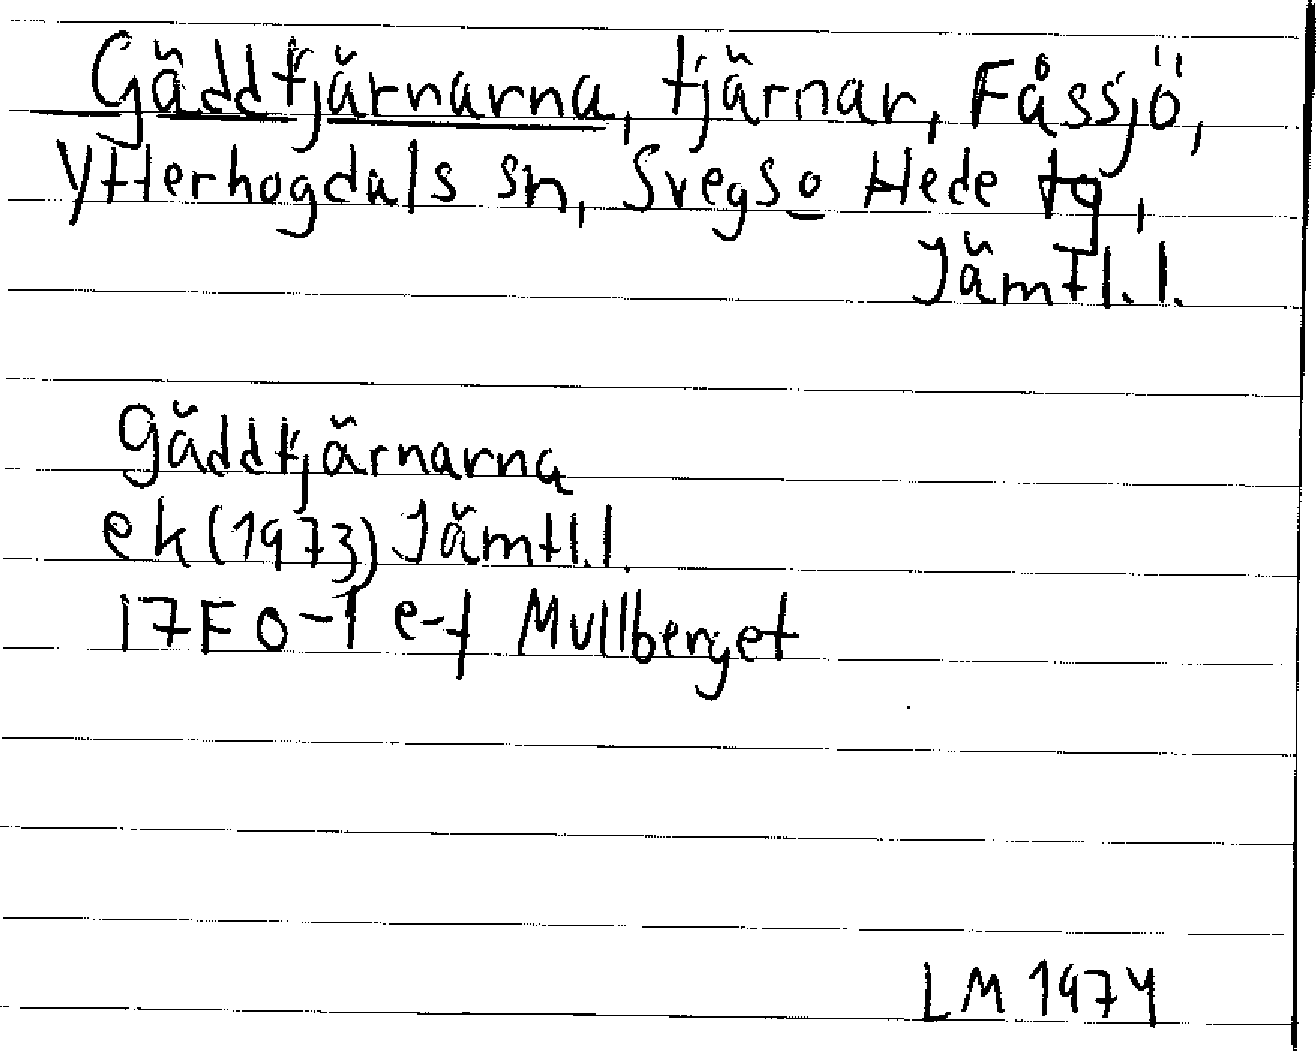 Gäddtjärnarna, tjärnar, Fåssjö,
Ytterhogdals sn, Svegs o Hede tg,
Jämtl. l.
Gäddtjärnarna
ek (1973) Jämtl. l.
17F 0-1 e-f Mullberget
LM 1974